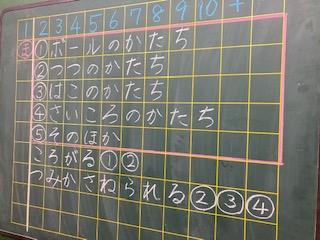 1 2 3 4 5 6 7 8 9 10 +
ま ①ボールのかたち
②つつのかたち
③はこのかたち
④さいころのかたち
⑤そのほか
ころがる①②
つみかさねられる②③④